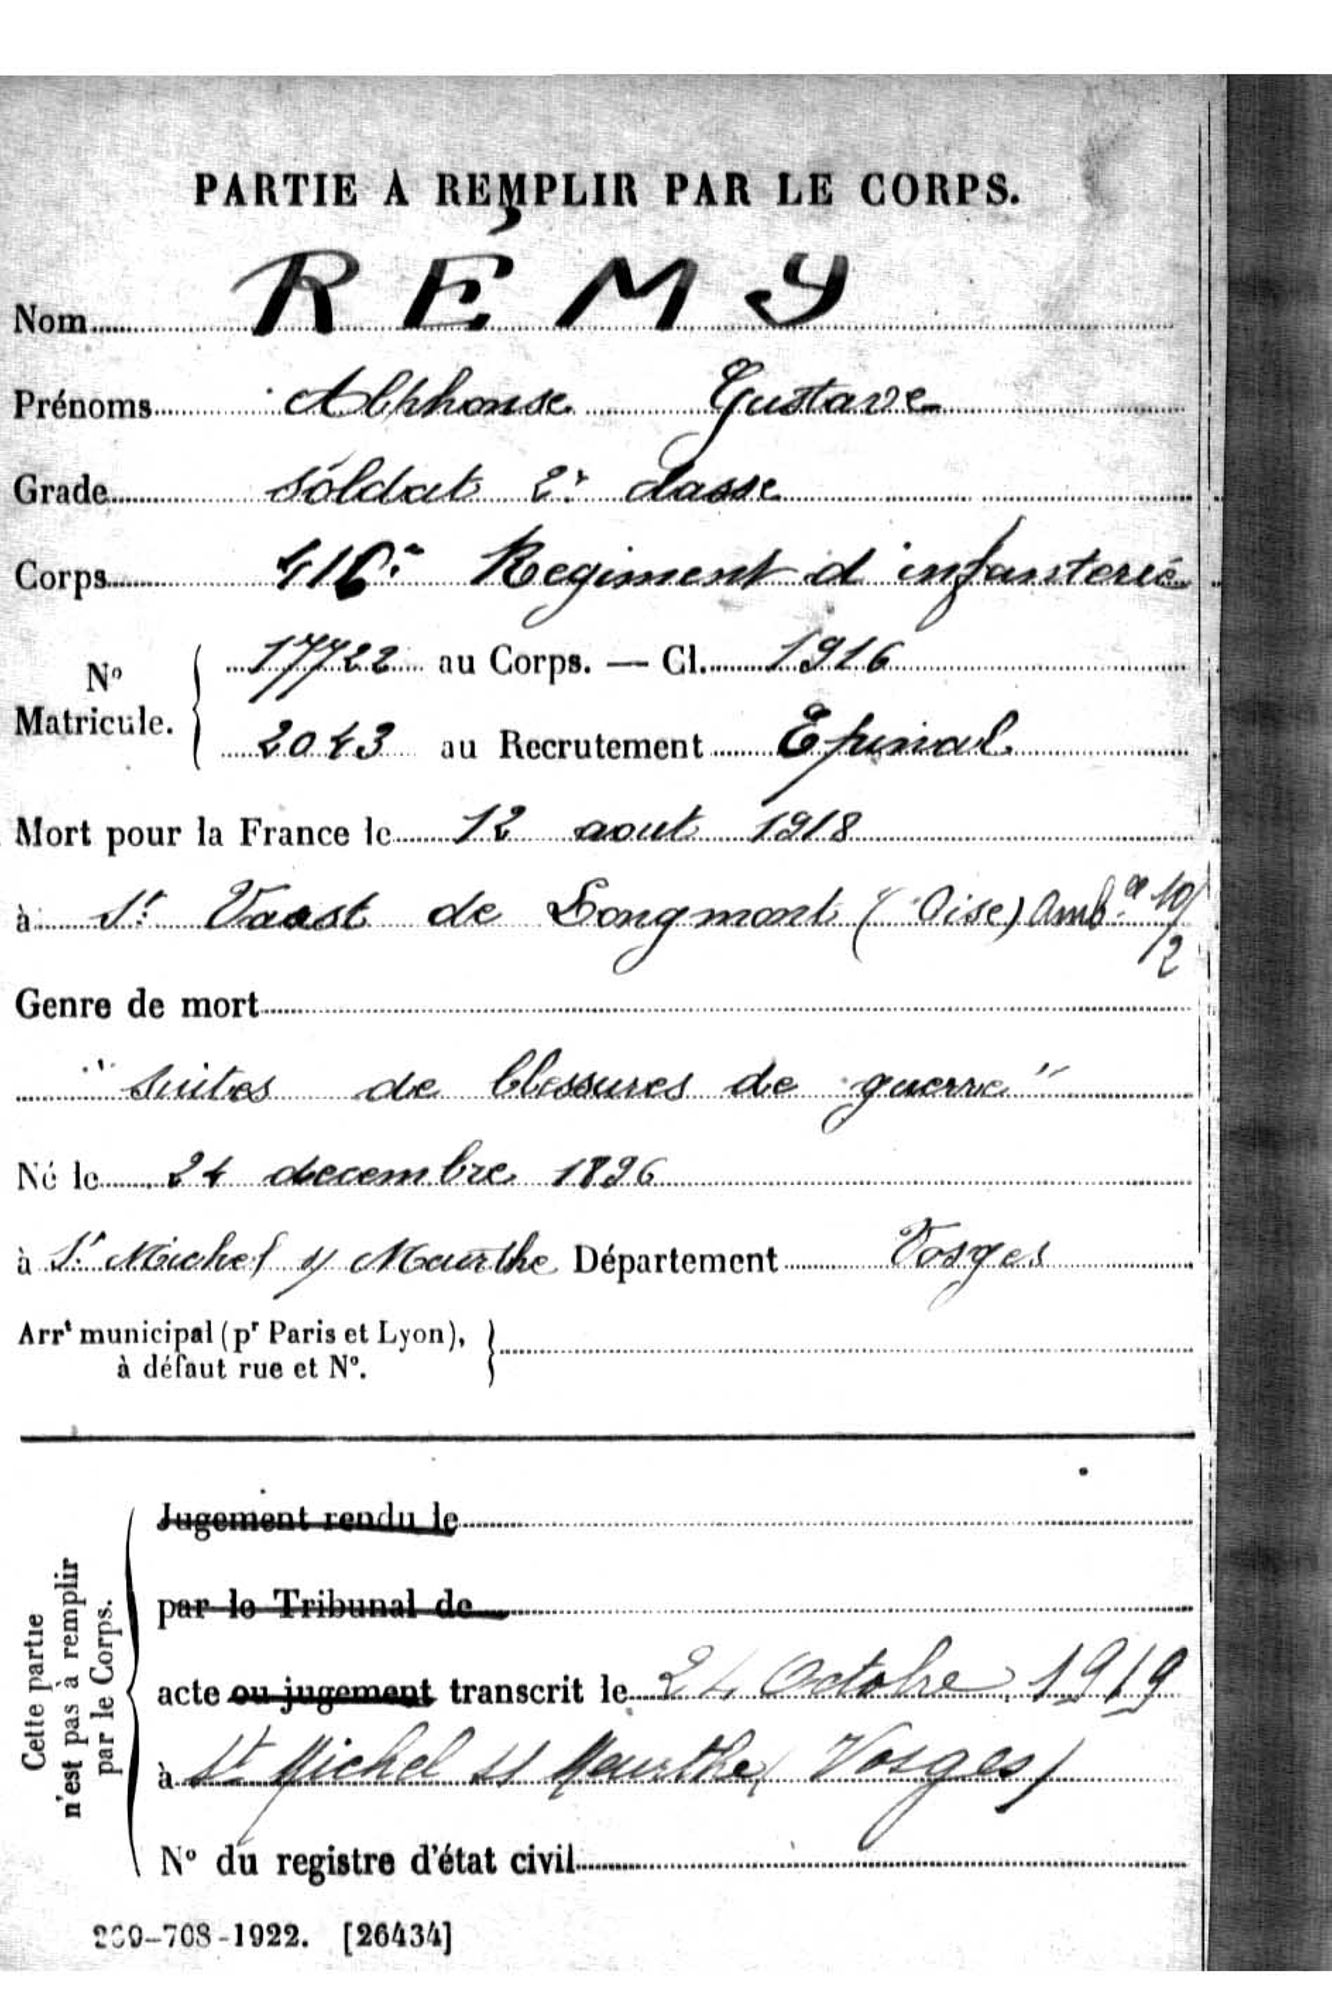 PARTIE A REMPLIR PAR LE CORPS.
Nom RÉMY
Prénoms Alphonse Gustave
Grade Soldat 2e classe
Corps 416e Regiment d'infanterie
No Matricule. 17722 au Corps. — Cl. 1916
2043 au Recrutement Epinal
Mort pour la France le 12 aout 1918
à St Vaast de Longmont (Oise) Ambce 10/2
Genre de mort
"Suites de blessures de guerre"
Né le 24 decembre 1896
à St Michel s/ Meurthe Département Vosges
Arrt municipal (pr Paris et Lyon),
à défaut rue et No.
Cette partie
n'est pas à remplir
par le Corps.
Jugement rendu le
par le Tribunal de
acte ou jugement transcrit le 24 Octobre 1919
à St Michel s/ Meurthe (Vosges)
No du registre d'état civil
269-708-1922. [26434]